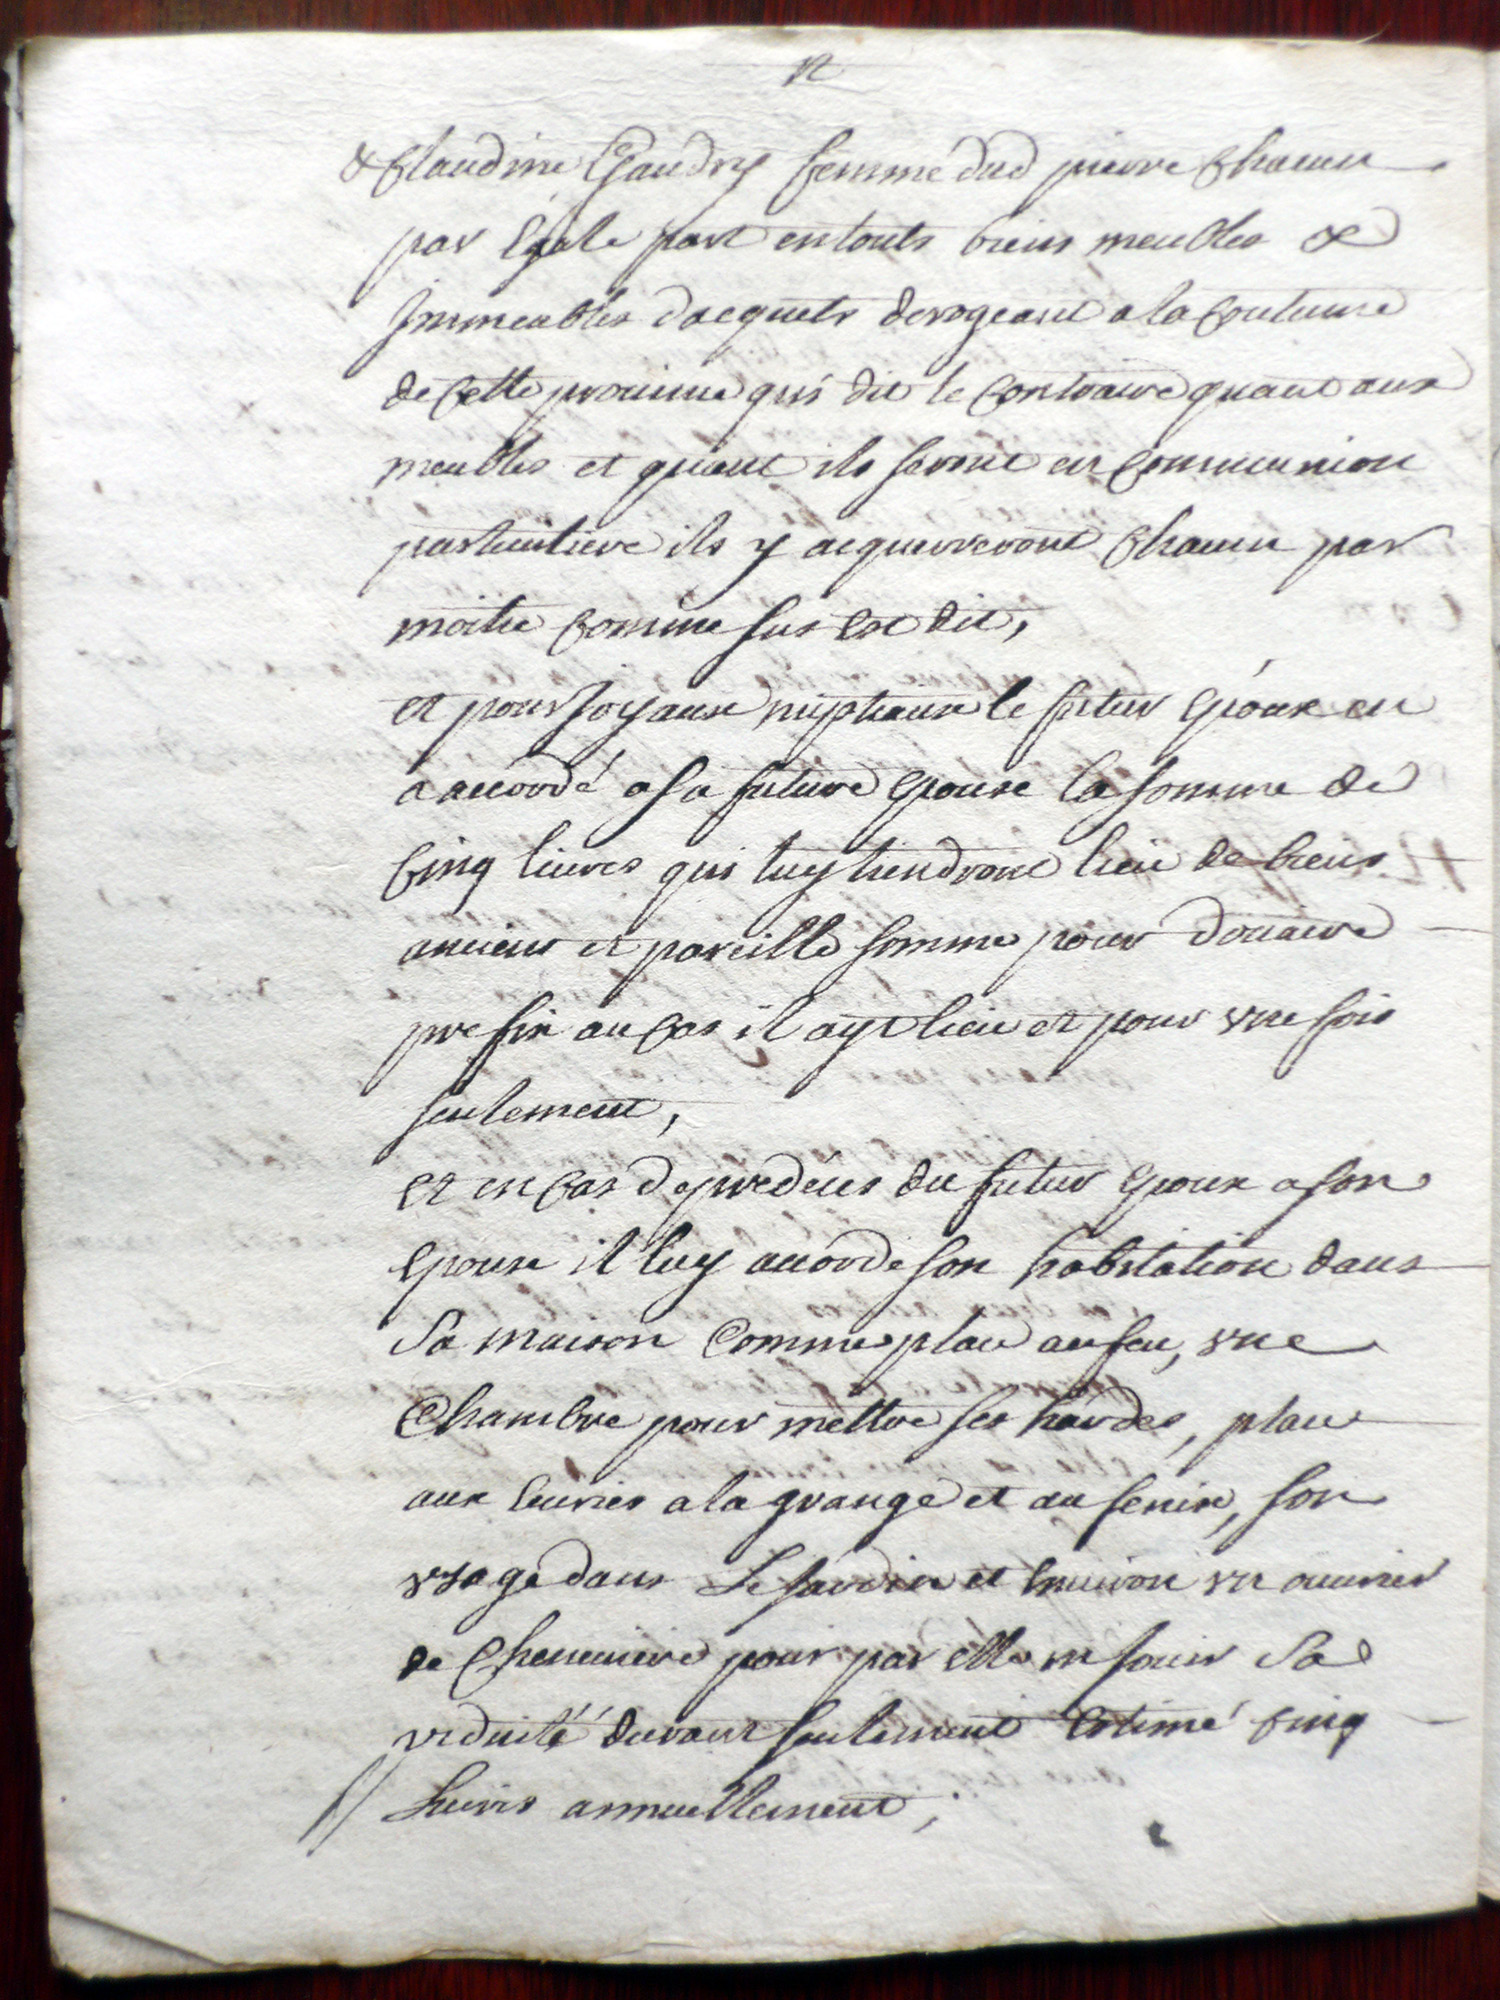 & Claudine Gaudry femme dud pierre Chacun
par Egale part en touts biens meubles &
Immeubles d'acquets derogeant a la Coutume
de Cette province qui dit le Contraire quant aux
meubles et quant ils seront en Communion
particuliere ils y acquerreront Chacun par
moitie Comme sus Est dit,
et pour Joyaux nuptiaux le futur Epoux en
a accordé a sa future Epouse la somme de
Cinq livres qui luy tiendront lieu de biens
anciens et pareille somme pour douaire
prefix au Cas il ayt lieu et pour une fois
seulement,
et en Cas de predécès du futur Epoux a son
Epouse il luy accorde son habitation dans
sa maison Comme place au feu, une
Chambre pour mettre ses hardes, place
aux Ecuries a la grange et au fenix, son
usage dans Le Jardin et Environ un ouvrier
de Cheneviere pour par elle en Jouir sa
viduité durant seulement Estimé Cinq
Livres annuellement ;